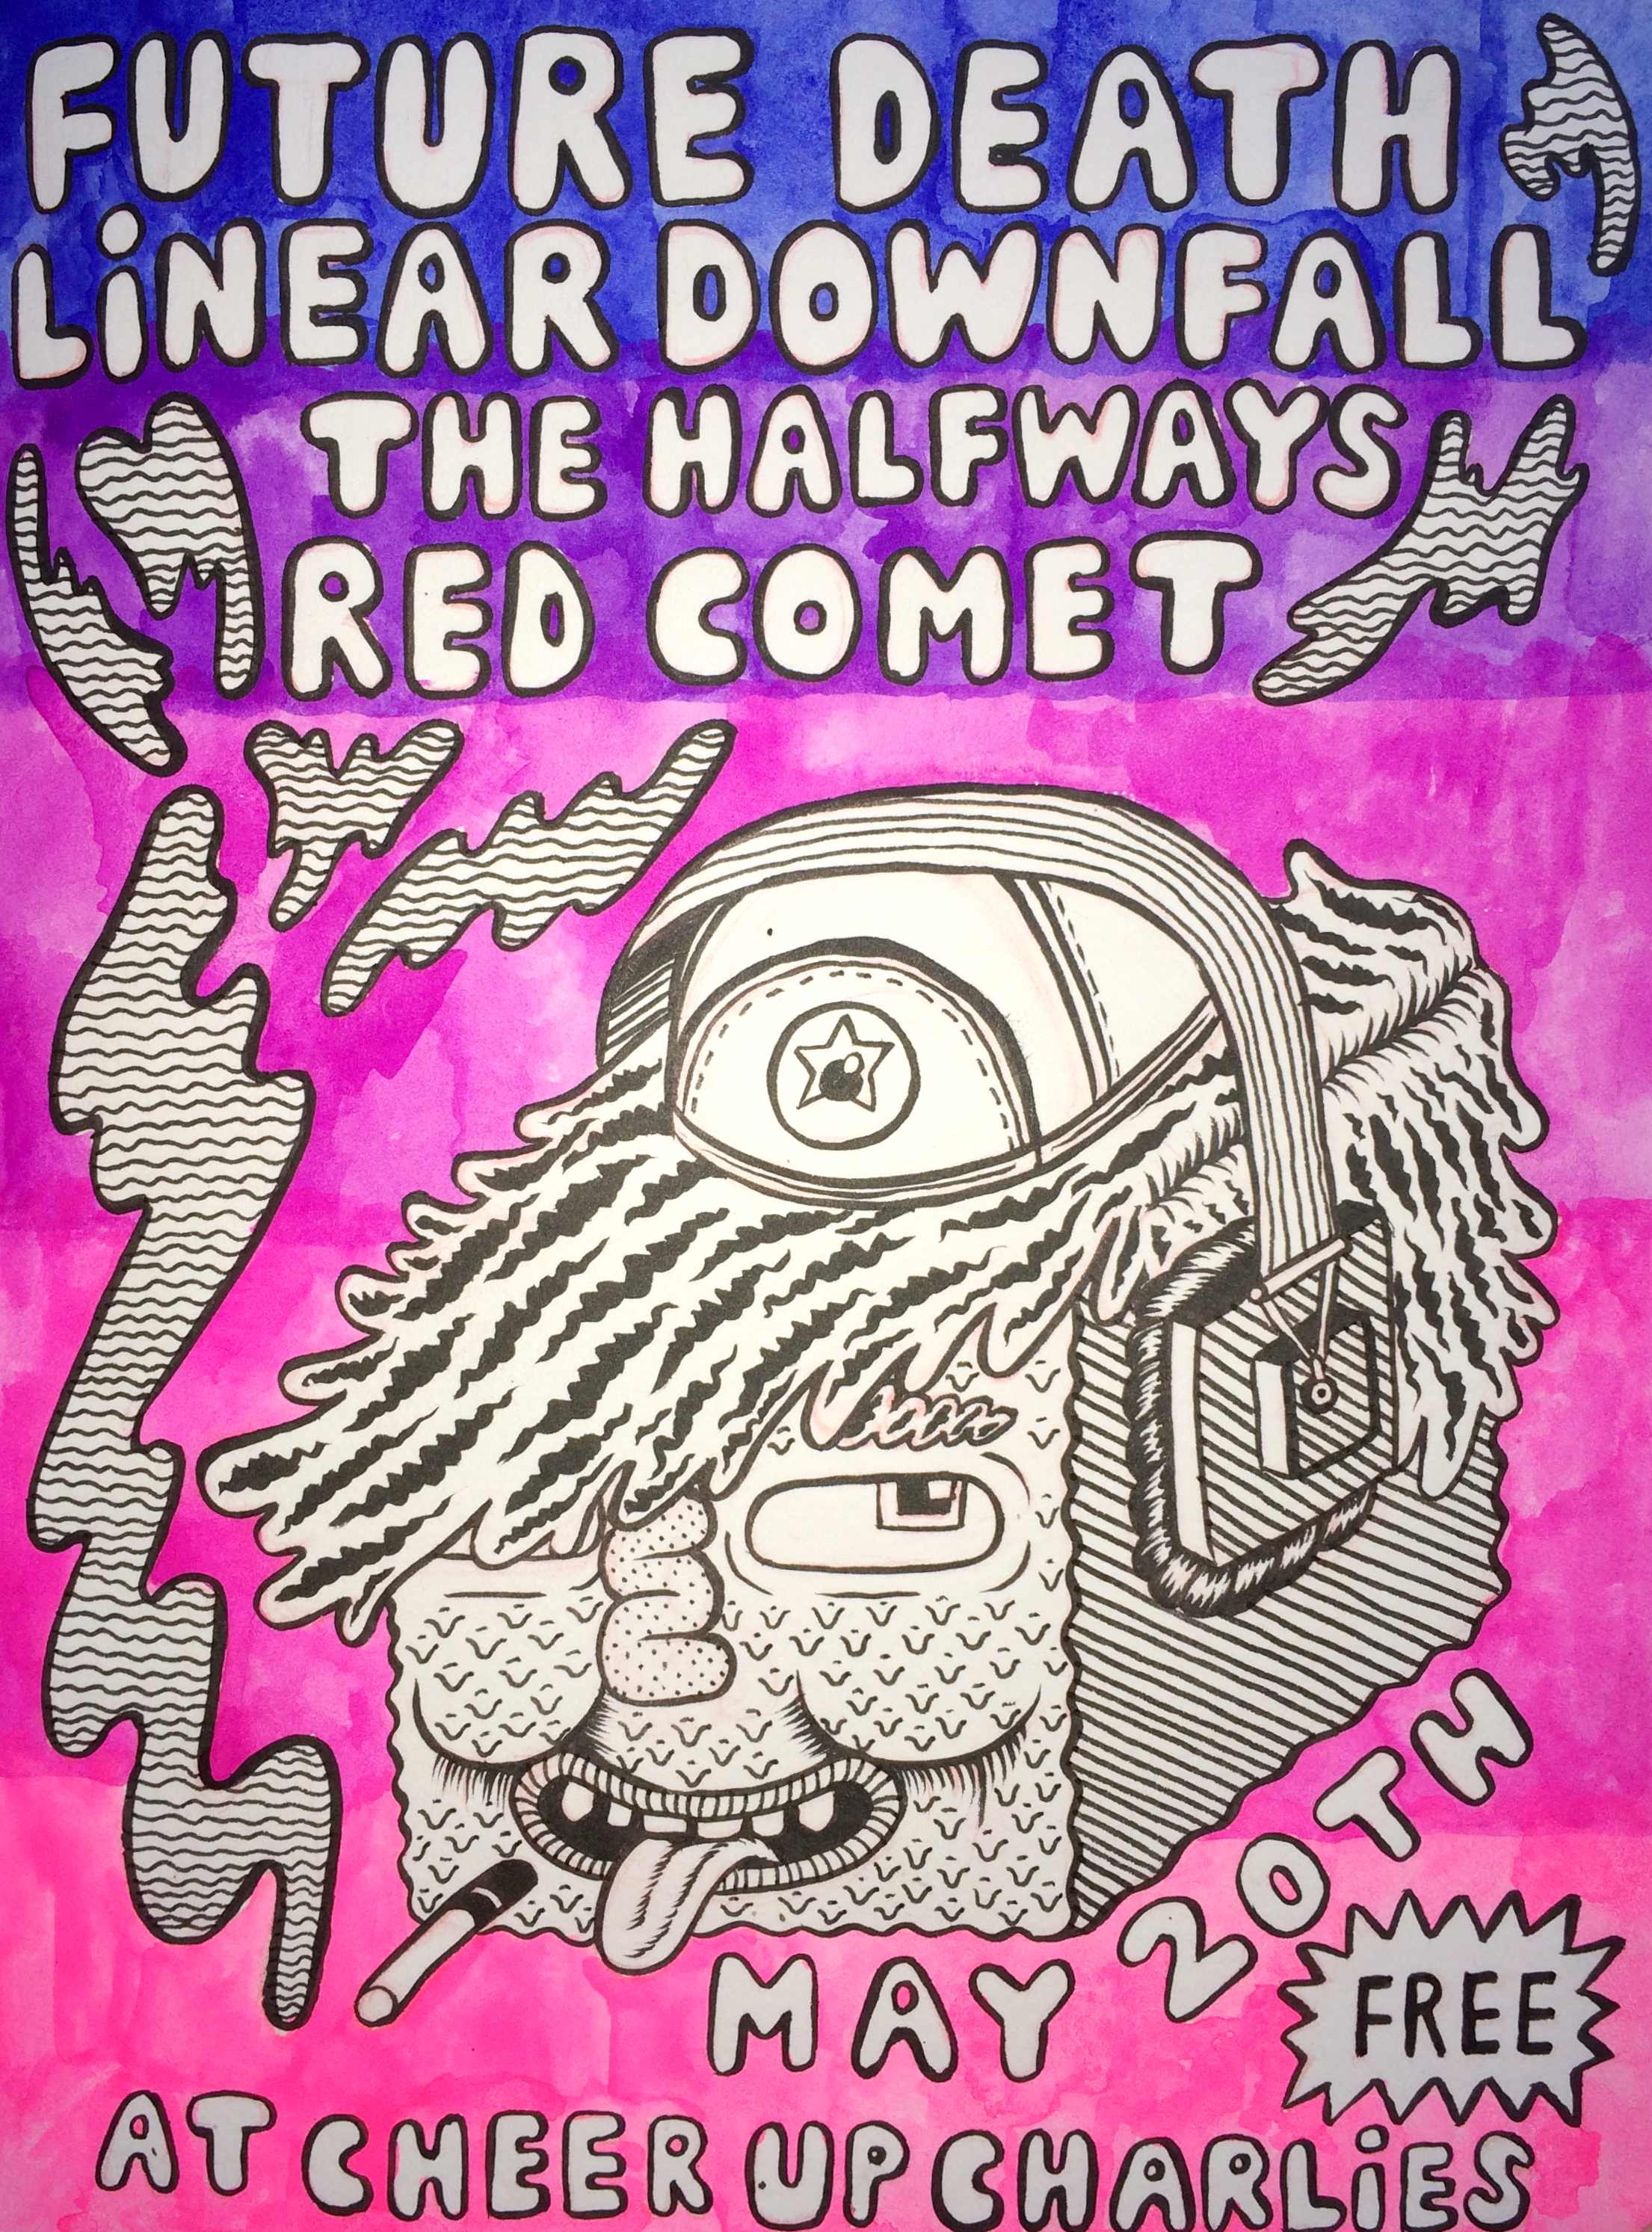 FUTURE DEATH
LiNEAR DOWNFALL
THE HALFWAYS
RED COMET
MAY 20TH
FREE
AT CHEER UP CHARLiES